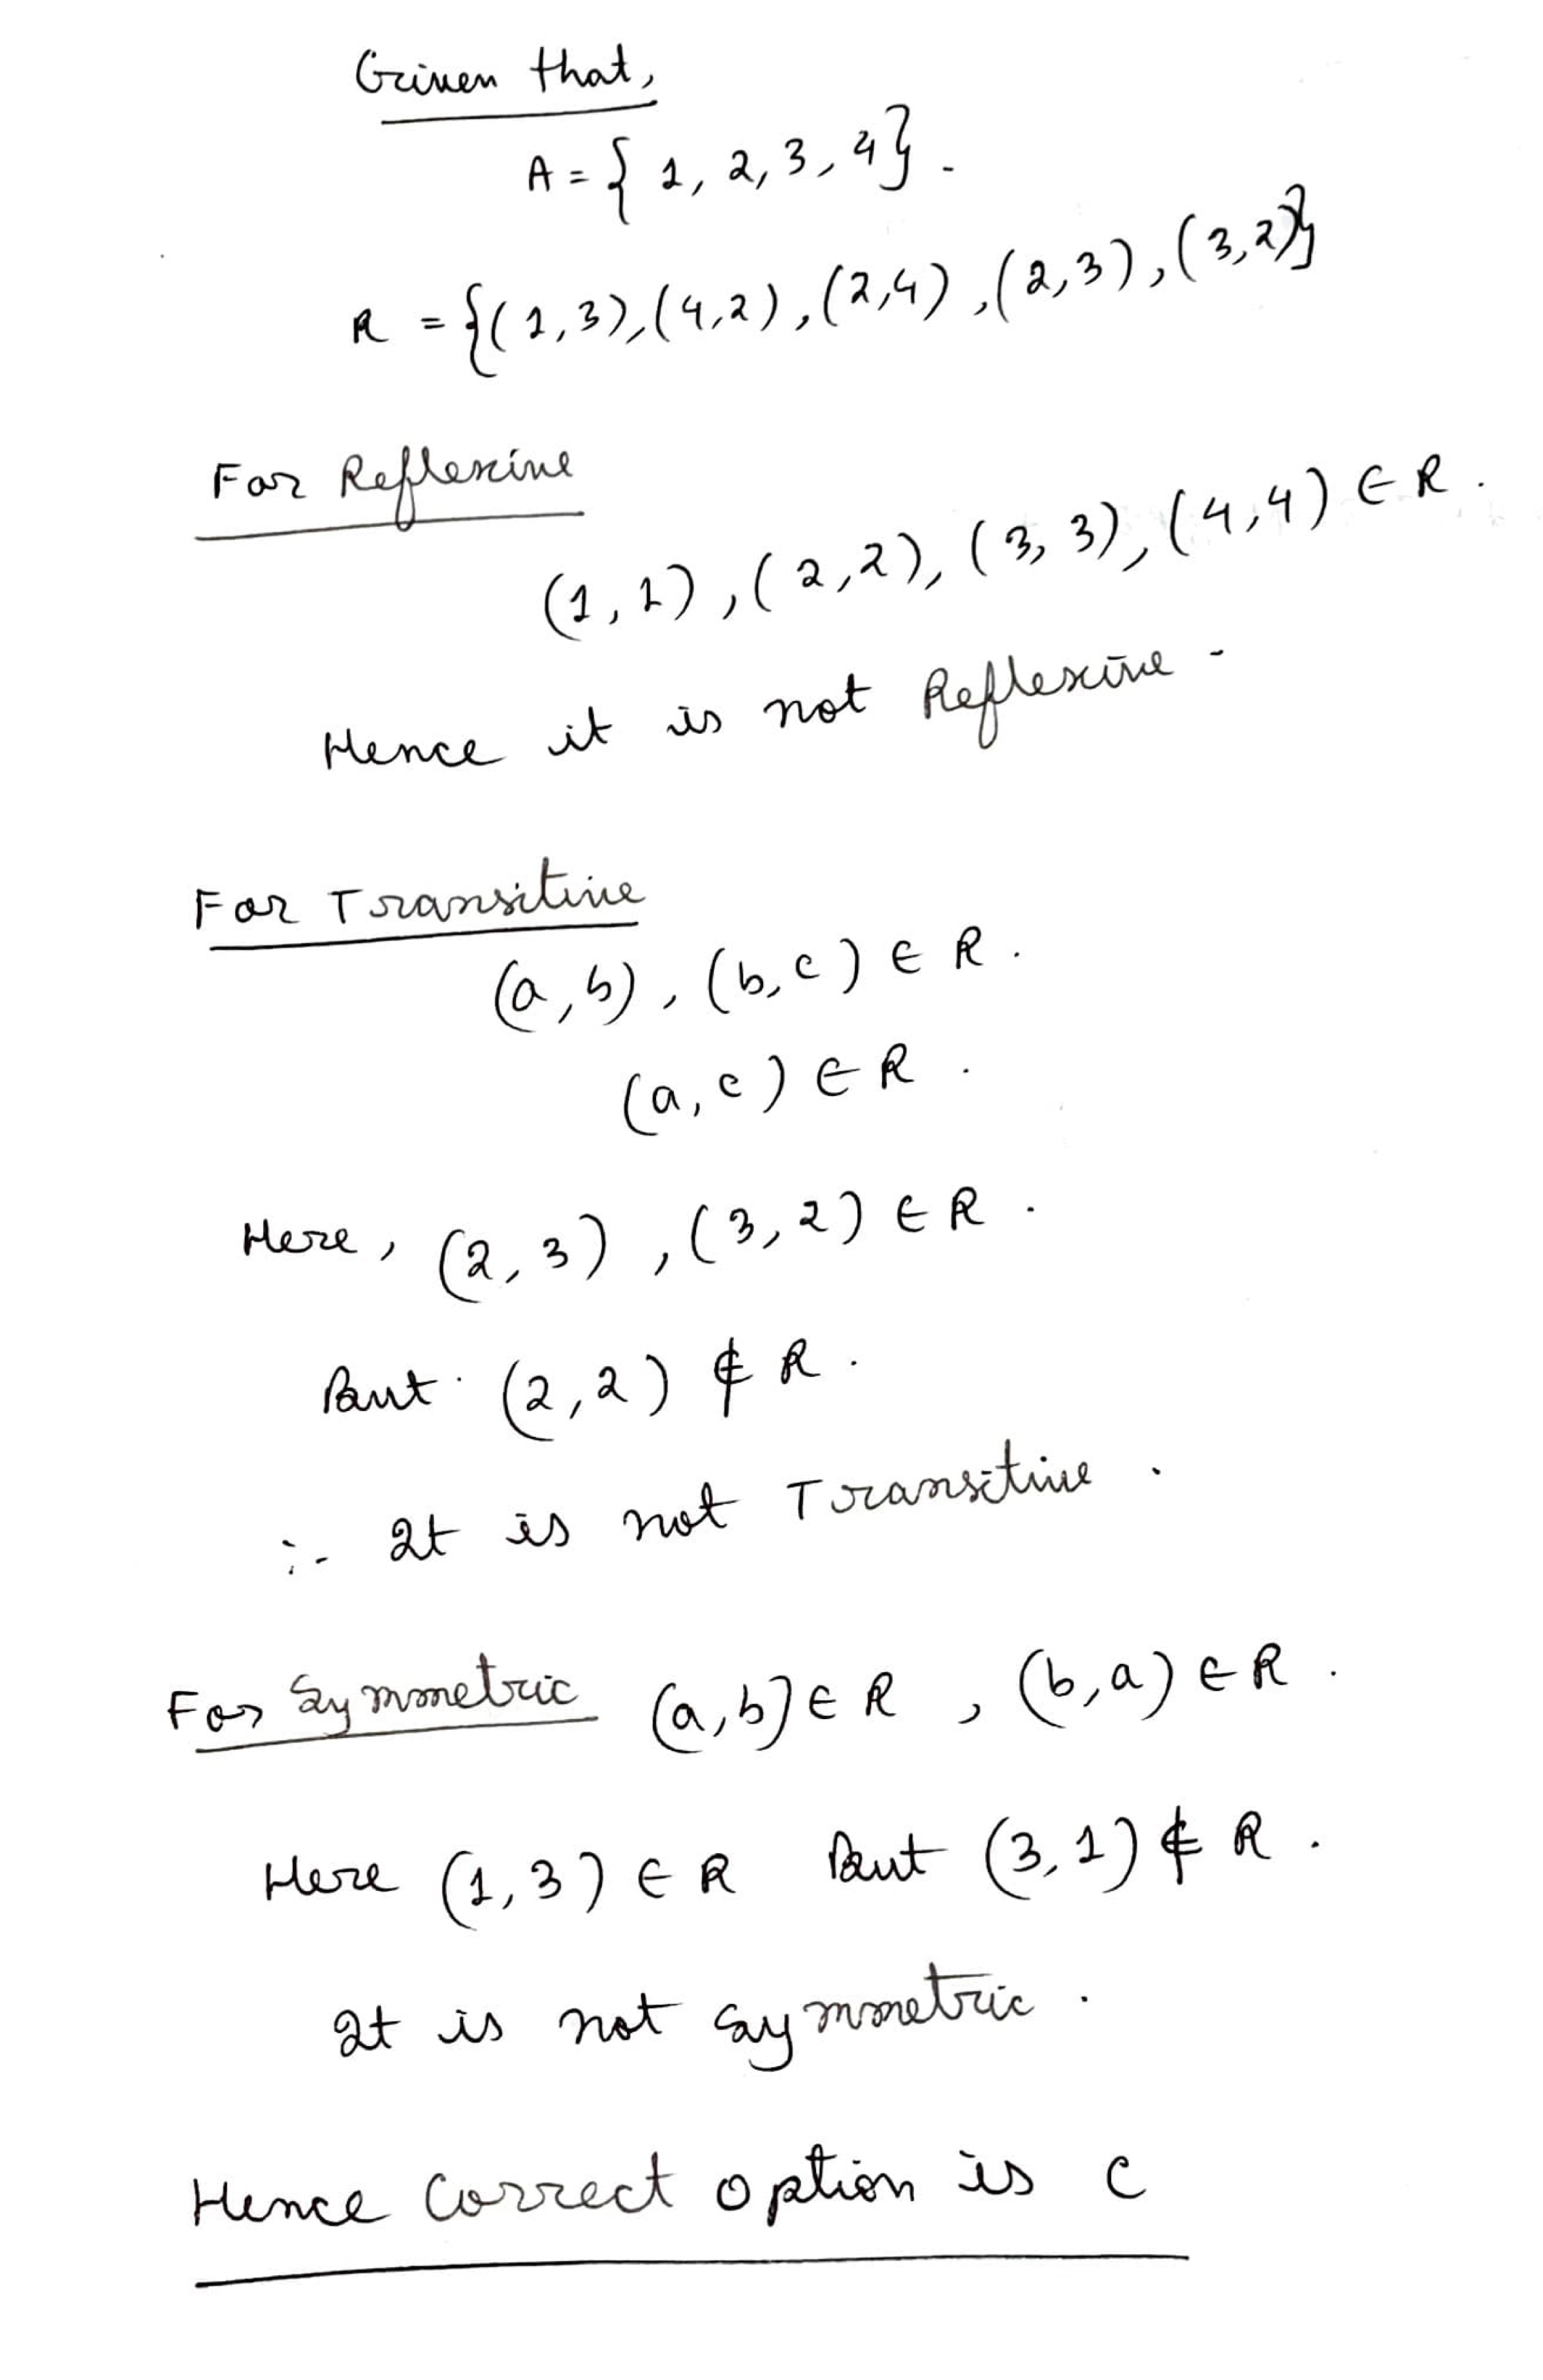 Given that,
A = { 1, 2, 3, 4 } .
R = {(1,3), (4,2), (2,4), (2,3), (3,2)}
For Reflexive
(1,1), (2,2), (3,3), (4,4) ∈ R.
Hence it is not Reflexive -
For Transitive
(a,b), (b,c) ∈ R.
(a,c) ∈ R .
Here, (2,3), (3,2) ∈ R .
But (2,2) ∉ R.
:- It is not Transitive .
For Symmetric (a,b) ∈ R , (b,a) ∈ R .
Here (1,3) ∈ R But (3,1) ∉ R .
It is not Symmetric .
Hence Correct option is C